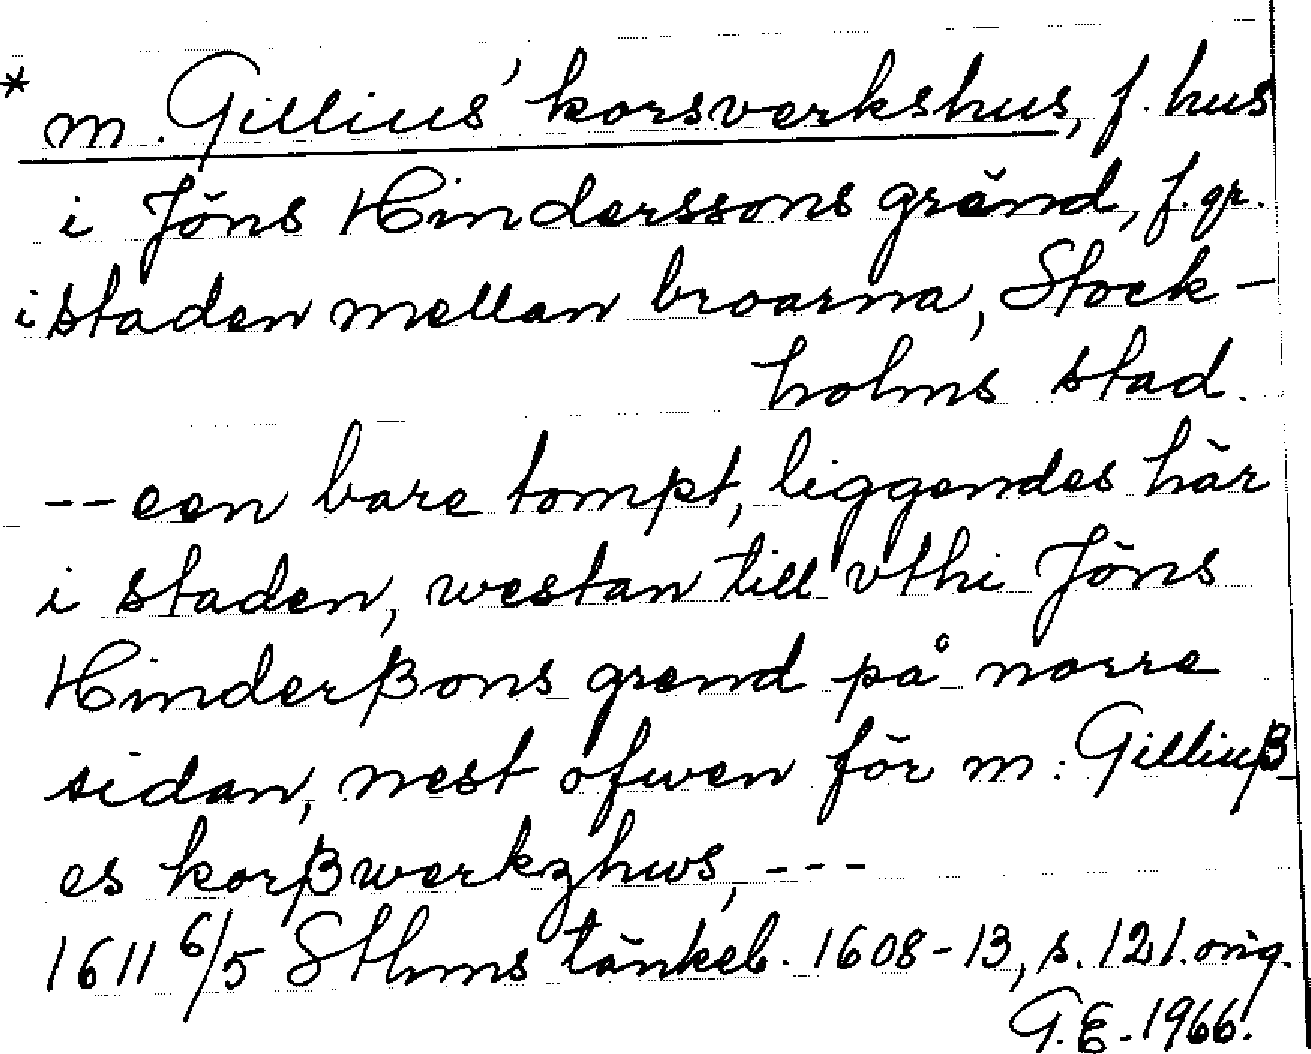 * m. Gillius' korsverkshus, f. hus
i Jöns Hinderssons gränd, f. gr.
i staden mellan broarna, Stock-
holms stad.
-- een bare tompt, liggendes här
i staden, westan till vthi Jöns
Hinderßons grend på norre
sidan, nest ofwen för m: Gilliuß
es korßwerkzhws, ---
1611 6/5 Sthms tänkeb. 1608-13, s. 121. orig.
G.E. 1966.